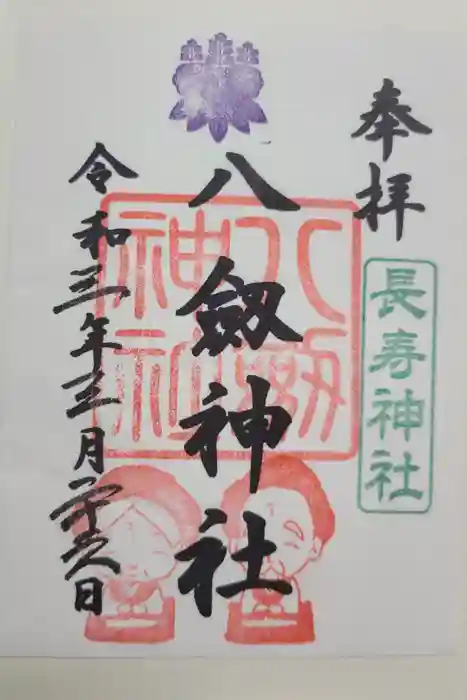 奉拝
長寿神社
八劔神社
八劔神社
令和三年三月二十日